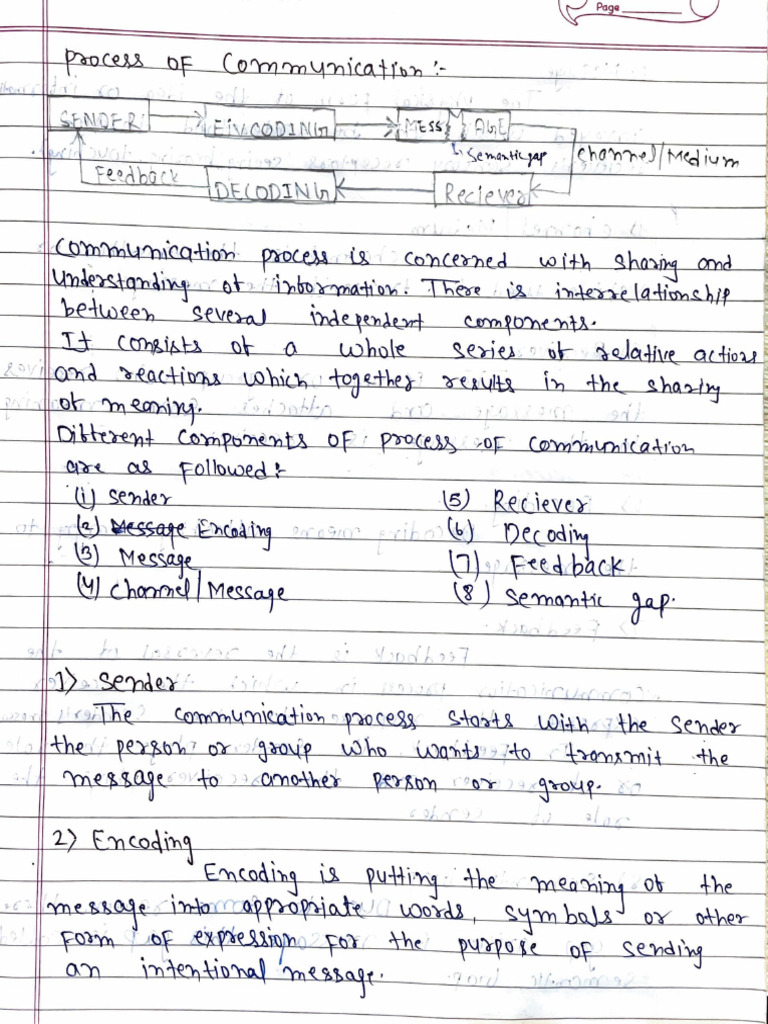 Page
Process of Communication :-
SENDER ENCODING MESS AGE
Semantic gap Channel/Medium
Feedback DECODING Reciever
Communication process is concerned with sharing and
understanding of information. There is interrelationship
between several independent components.
It consists of a whole series of relative actions
and reactions which together results in the sharing
of meaning.
Different components of process of communication
are as followed :-
(1) Sender
(2) Message Encoding
(3) Message
(4) Channel/Message
(5) Reciever
(6) Decoding
(7) Feedback
(8) Semantic gap.
1) Sender
The communication process starts with the sender
the person or group who wants to transmit the
message to another person or group.
2) Encoding
Encoding is putting the meaning of the
message into appropriate words, symbols or other
form of expression for the purpose of sending
an intentional message.